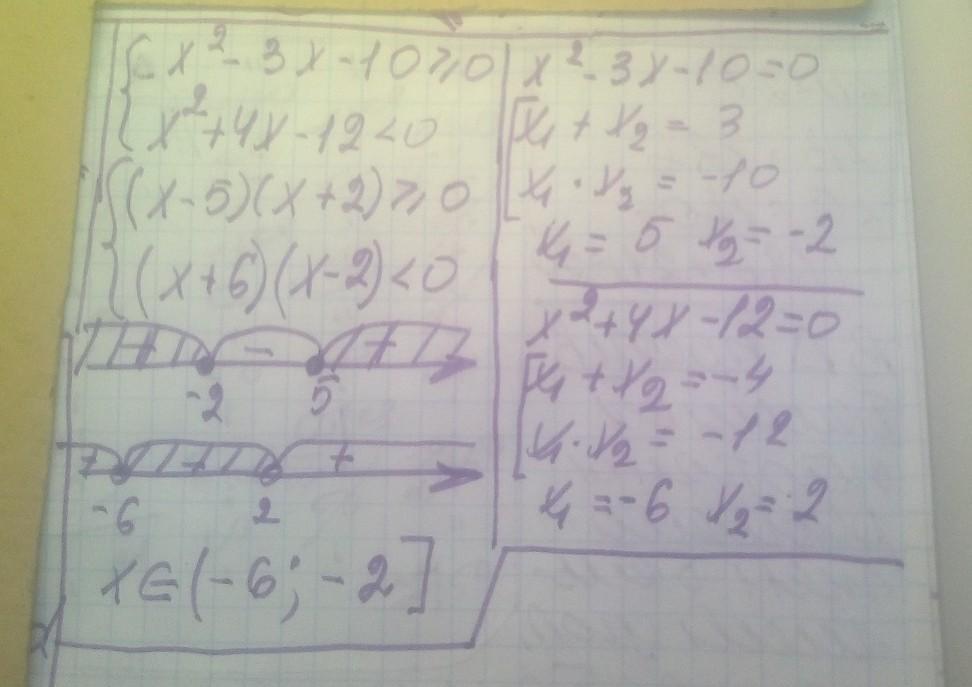 x² - 3x - 10 ⩾ 0
x² + 4x - 12 < 0
(x - 5)(x + 2) ⩾ 0
(x + 6)(x - 2) < 0
+ - +
-2 5
+ + +
-6 2
x ∈ (-6; -2]
x² - 3x - 10 = 0
x₁ + x₂ = 3
x₁ · x₂ = -10
x₁ = 5 x₂ = -2
x² + 4x - 12 = 0
x₁ + x₂ = -4
x₁ · x₂ = -12
x₁ = -6 x₂ = 2